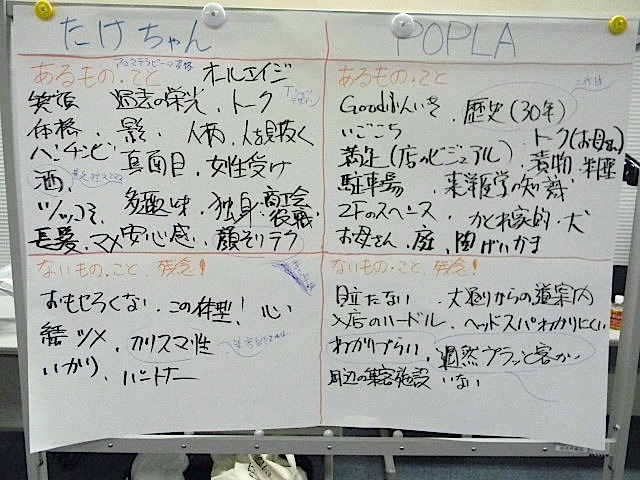 たけちゃん
あるもの・こと
アロマテラピーの資格
オールエイジ
笑顔 過去の栄光、トーク
Tシャツデザイン
体格、影、人柄、人を見抜く
真面目、女性受け
酒、
多趣味、独身、商工会役職
毛髪、マメ 安心感、顔そりテク
ないもの・こと、残念!
おもしろくない、この体型! 心
ツメ、カリスマ性
いかり、パートナー
POPLA
あるもの・こと
二代目
Goodふんいき、歴史(30年)
いごこち
トーク(お母さん)
満足(店のビジュアル)、漬物
駐車場 東洋医学の知識
2Fのスペース、かくれ家的、犬
お母さん、庭、陶げいかま
ないもの・こと 残念!
目立たない、大通りからの道案内
入店のハードル、ヘッドスパわかりにくい
わかりづらい、偶然フラッと客がいない
周辺の集客施設